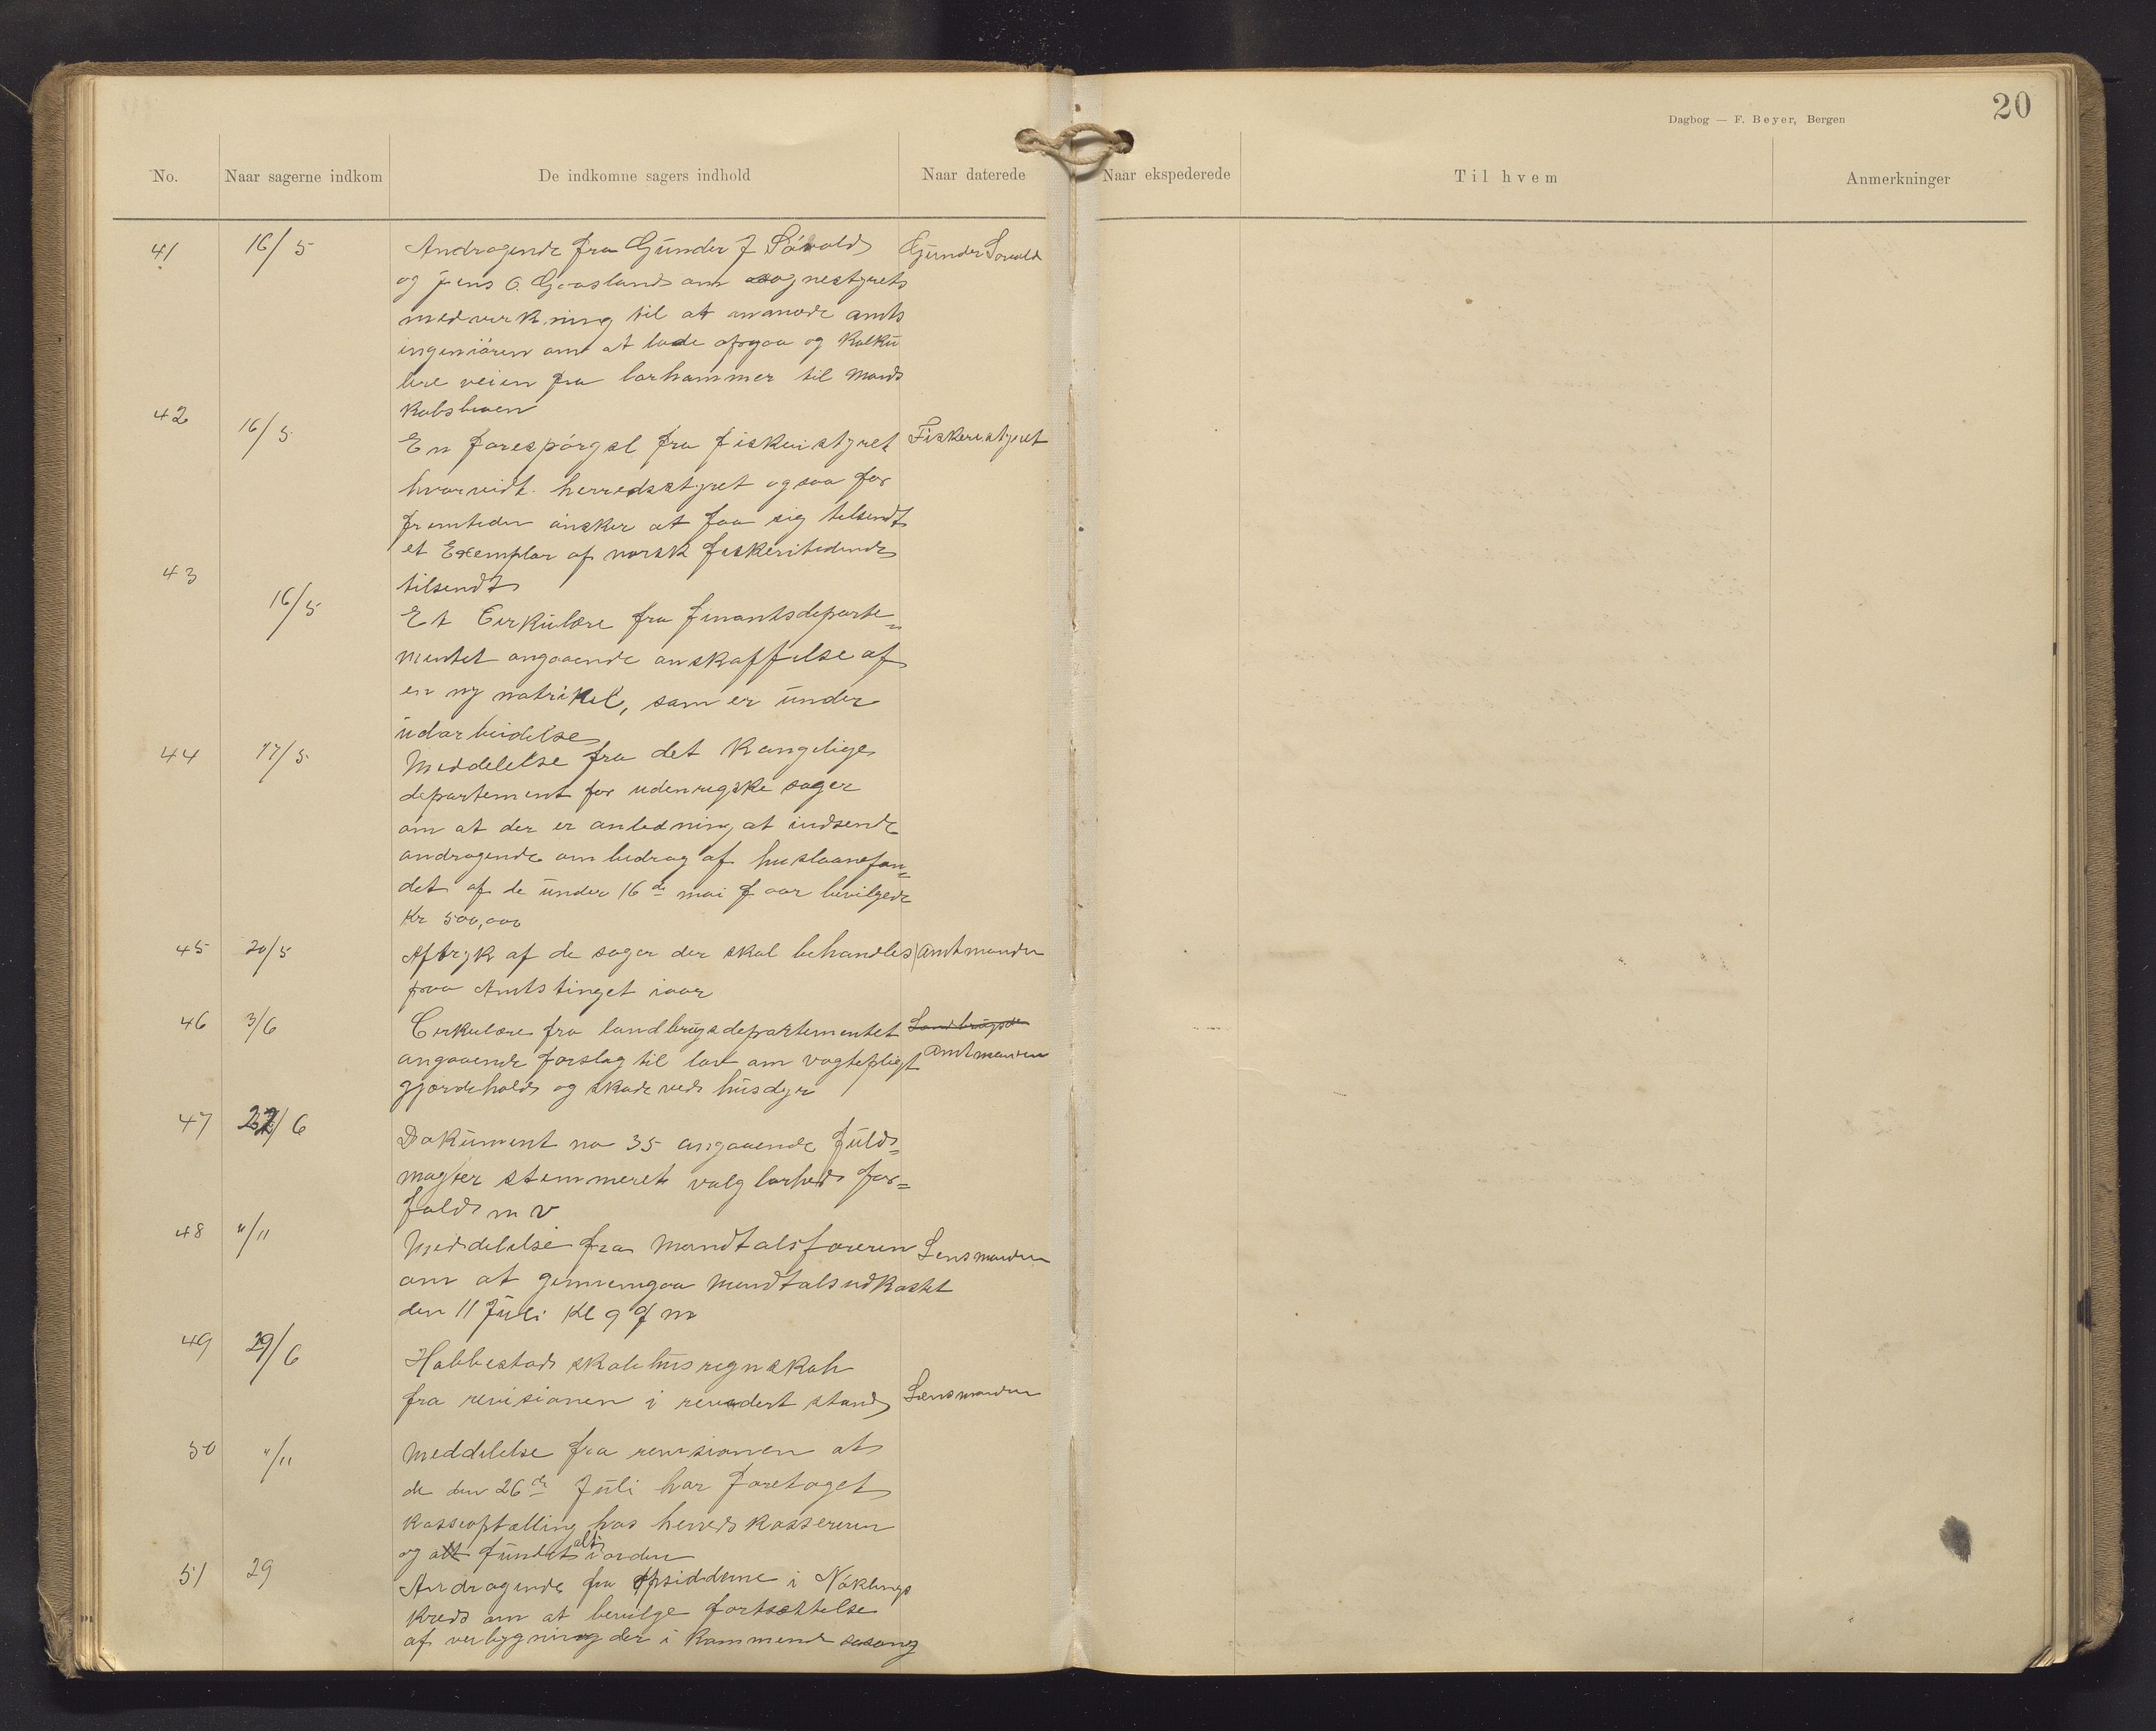 20
Dagbog — F. Beyer, Bergen
No. Naar sagerne indkom De indkomne sagers indhold Naar daterede Naar ekspederede Til hvem Anmerkninger
41 16/5 Andragende fra Gunder J Sövold Gunder Sovold
og Jens O. Gaasland om sognestyrets
medverkning til at anmode amts
ingeniören om at lade opgaa og Kalku
lere veien fra til
42 16/5 En forespörgsl fra fiskeristyret Fiskeristyret
hvorvidt herredsstyret ogsaa for
fremtiden önsker at faa sig telsendt
et Exemplar af norsk fiskeritidende
43 tilsendt
16/5 Et Cirkulære fra finantsdeparte=
mentet angaaende anskaffelse af
en ny matrikel, som er under
udarbeidelse
44 17/5 Meddelelse fra det Kongelige
departement for udenrigske sager
om at der er anledning at indsende
andragende om bedrag af huslaanefon=
det af de under 16de mai f aar bevilgede
Kr 500,000
45 20/5 Aftryk af de sager der skal behandles Amtmanden
paa Amtstinget iaar
46 3/6 Cirkulære fra landbrugsdepartementet Landbrugsde
angaaende forslag til lov om vogtepligt Amtmanden
gjördehold og skade ved husdyr
47 22/6 Dokument no 35 angaaende fuld=
magter stemmeret valgbarhed for=
fald m v
48 "/11 Meddelelse fra Mandtalsföreren Lensmanden
om at gennemgaa Mandtalsudkastet
den 11 Juli Kl 9 f m
49 29/6 Habbestad skolehusregnskab
fra revisionen i revidert stand Lensmanden
50 "/11 Meddelelse fra revisionen at
de den 26de Juli har foretaget
Kasseoptælling hos herredskassereren
og att fundet alt i orden
51 29 Andragende fra opsidderne i Nöklings
Kreds om at bevilge fortsættelse
af veibygning der i kommende sesong